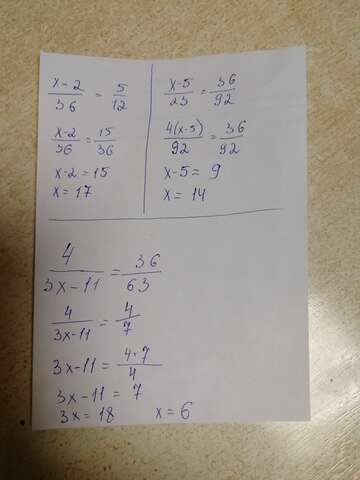 x-2/36 = 5/12
x-2/36 = 15/36
x-2 = 15
x = 17
x-5/23 = 36/92
4(x-5)/92 = 36/92
x-5 = 9
x = 14
4/3x-11 = 36/63
4/3x-11 = 4/7
3x-11 = 4·7/4
3x-11 = 7
3x = 18 x = 6